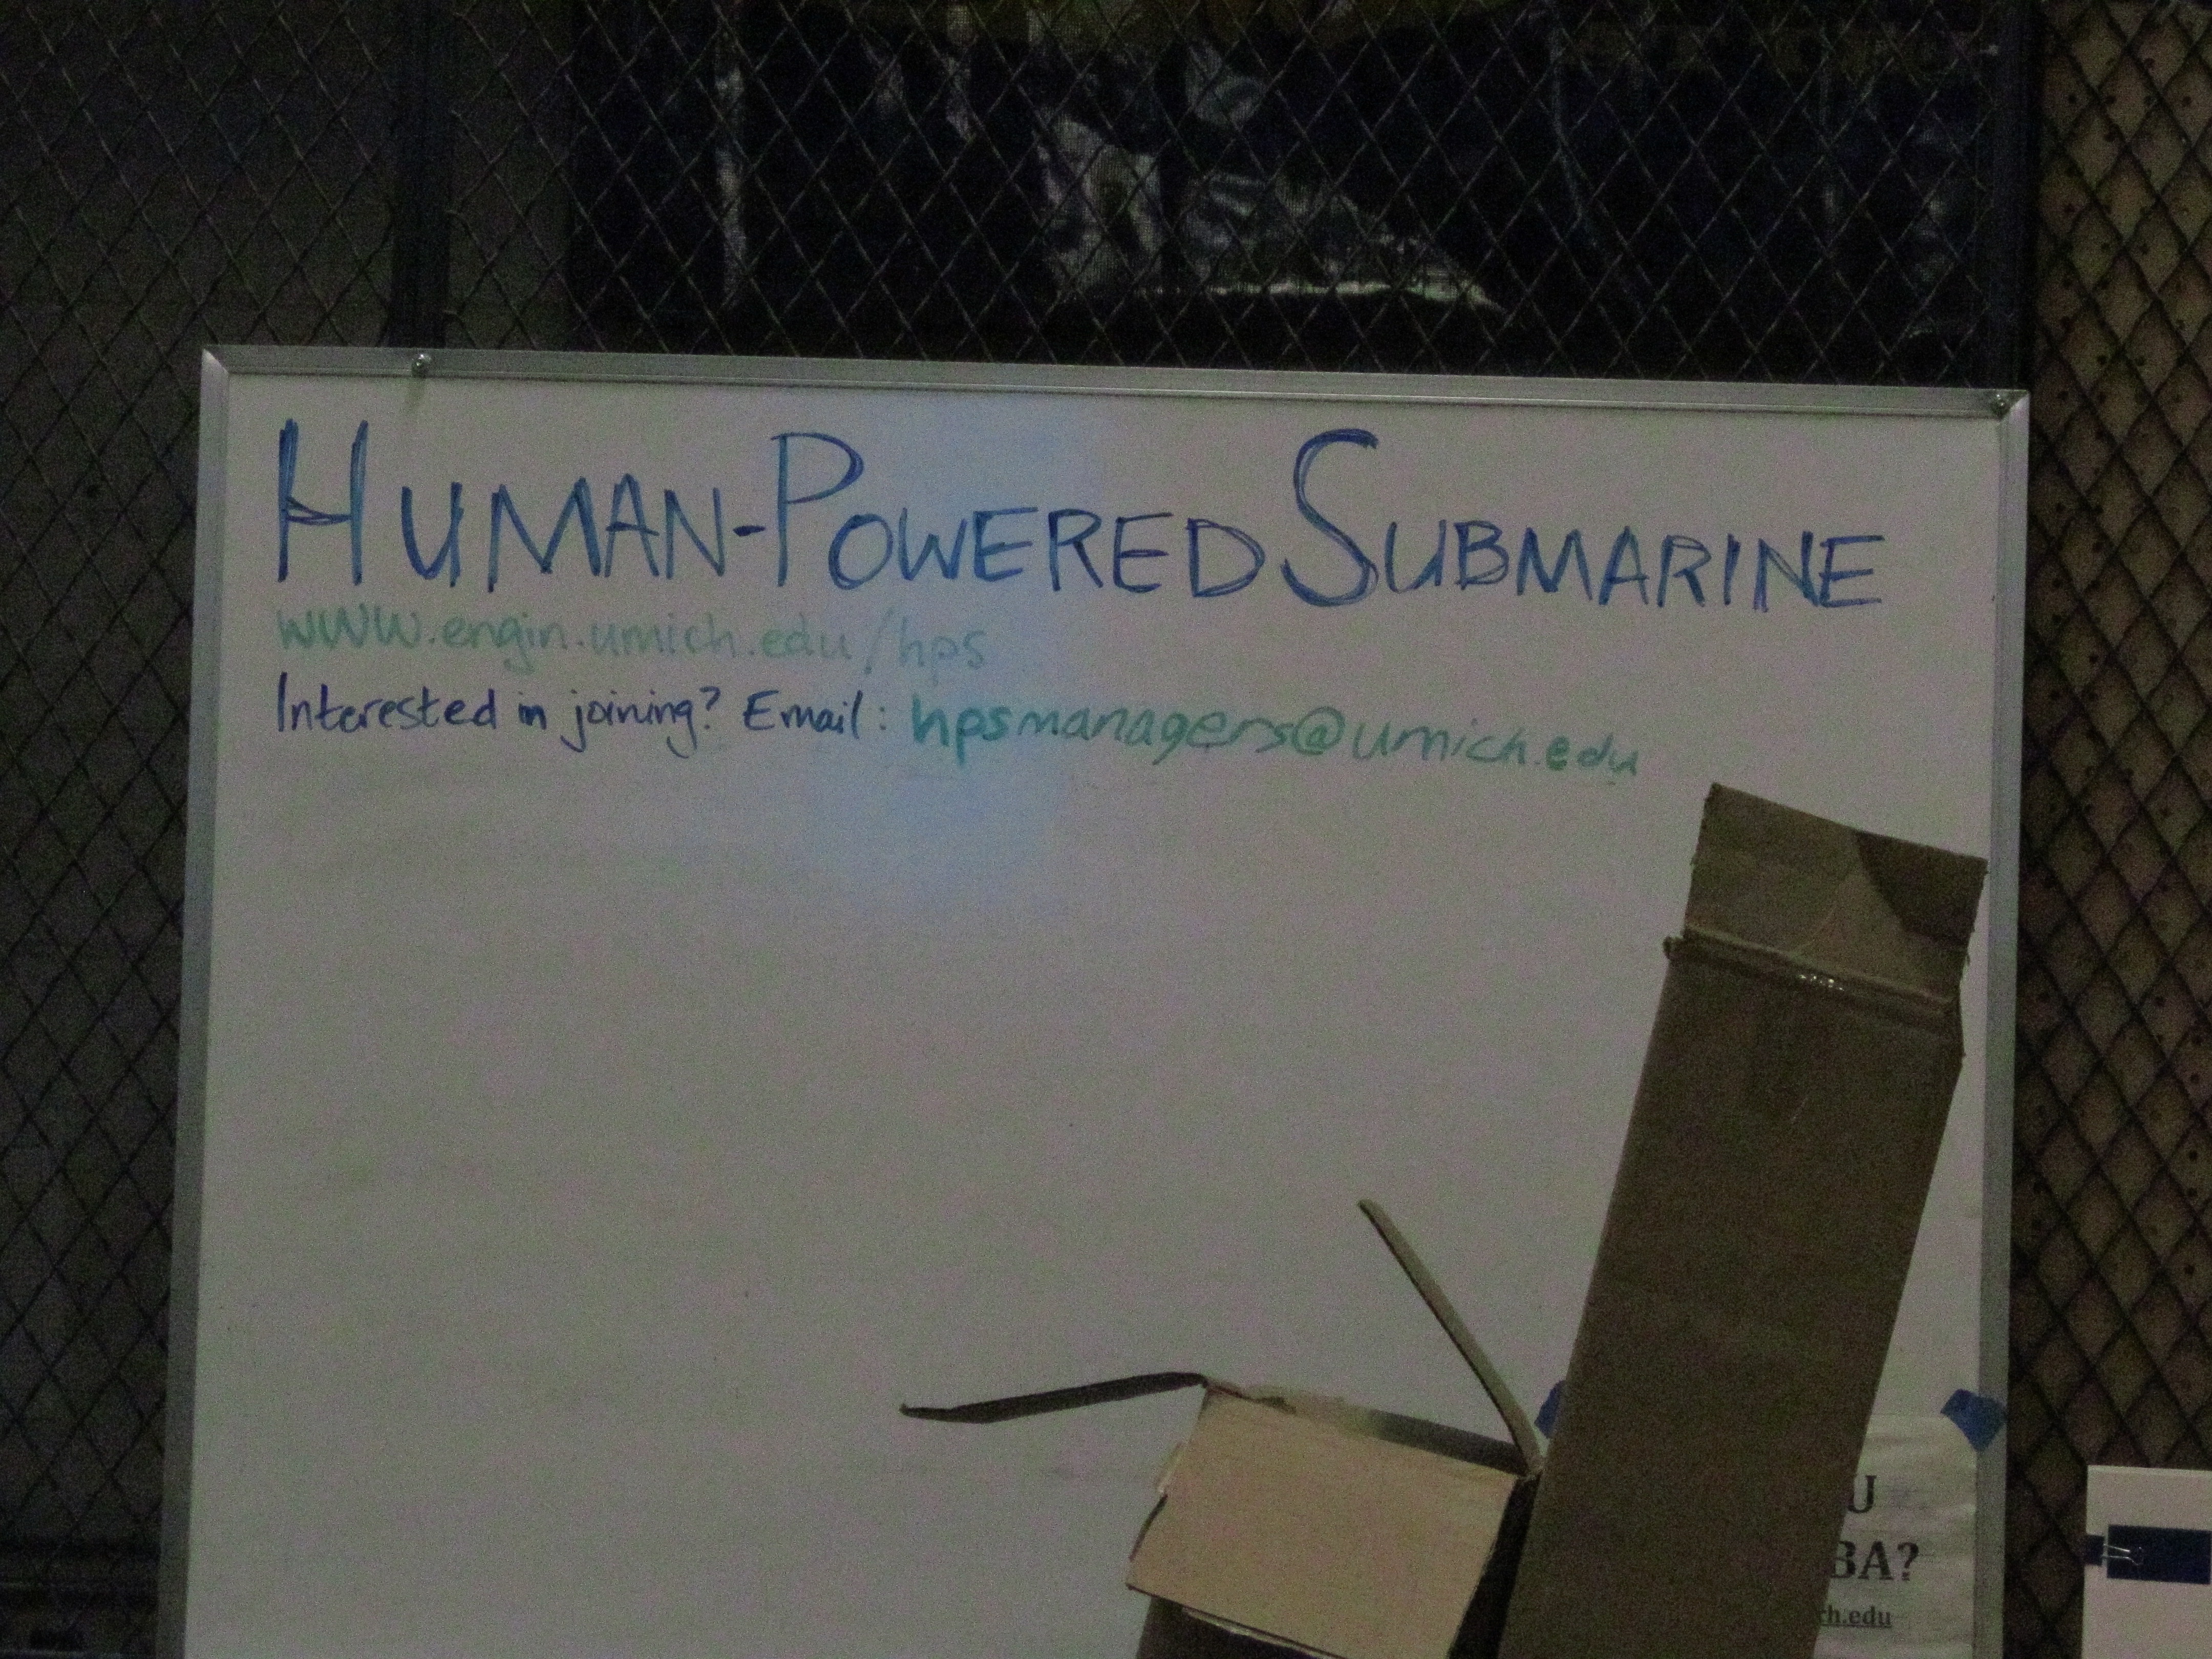 HUMAN-POWERED SUBMARINE
www.engin.umich.edu/hps
Interested in joining? Email: hpsmanagers@umich.edu
U
BA?
ch.edu